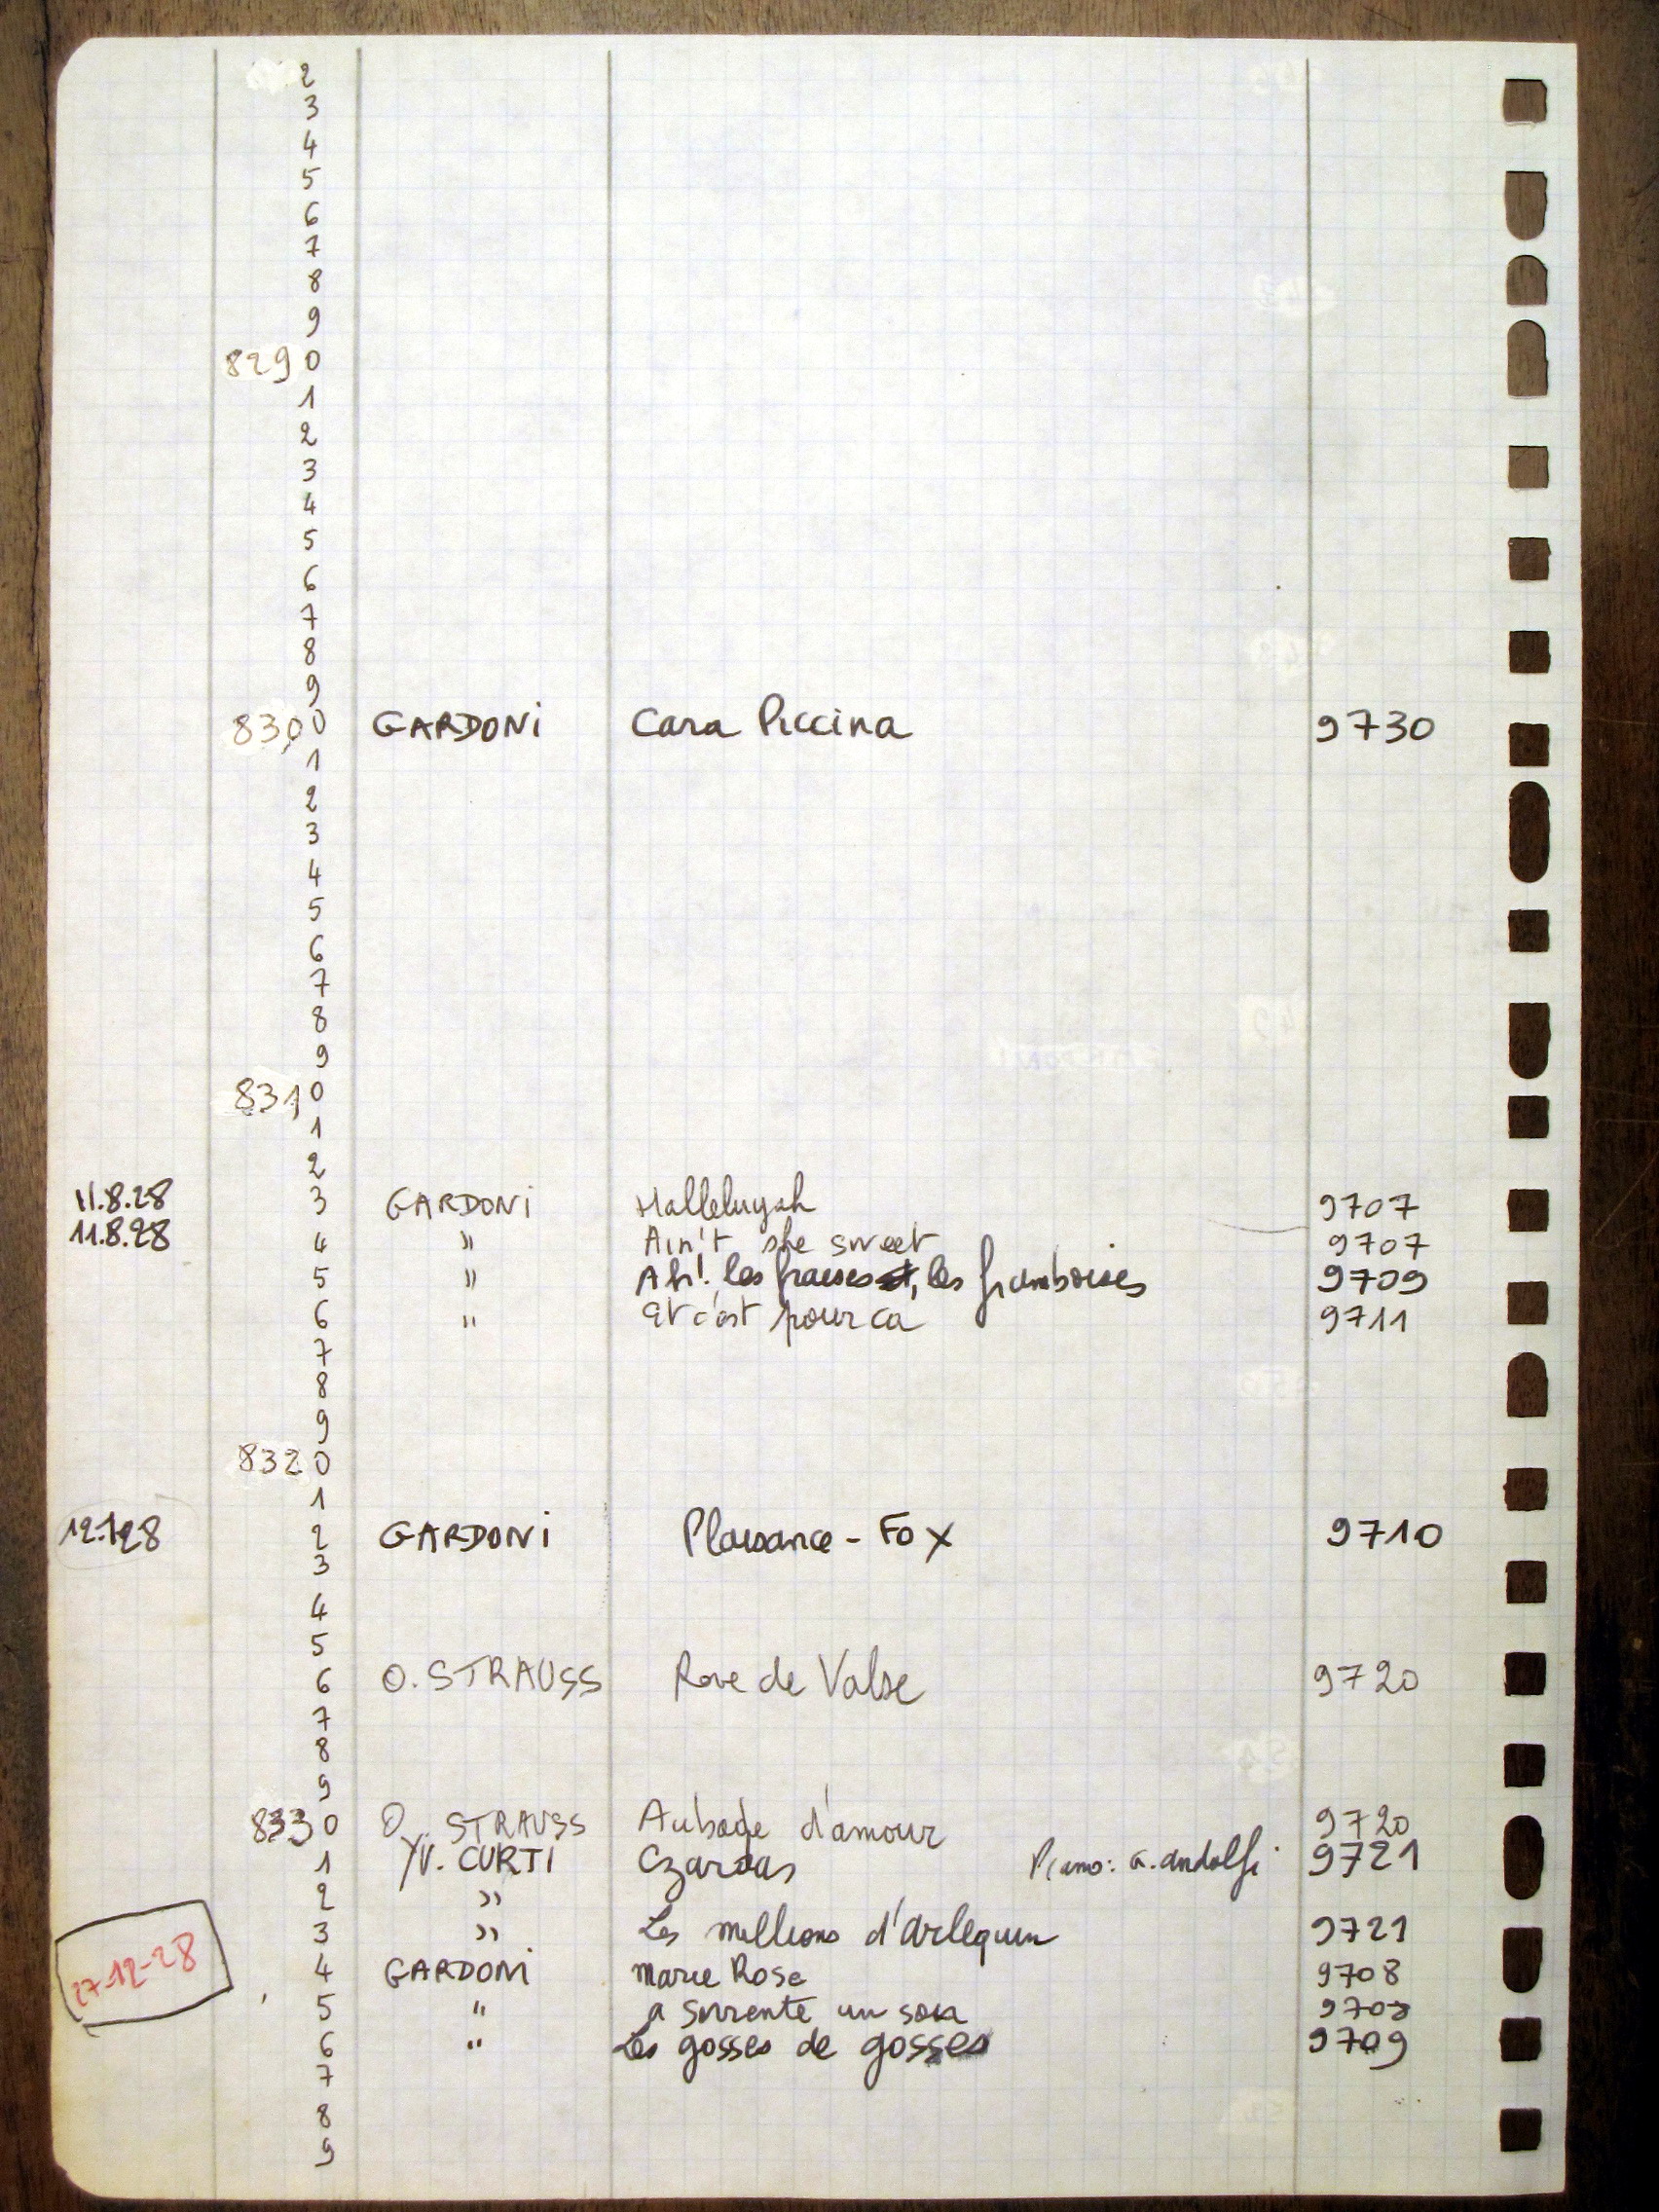 2
3
4
5
6
7
8
9
8290
1
2
3
4
5
6
7
8
9
8300 GARDONI Cara Piccina 9730
1
2
3
4
5
6
7
8
9
8310
1
2
11.8.28 3 GARDONI Halleluyah 9707
11.8.28 4 " Ain't she sweet 9707
5 " Ah! les fraises, les framboises 9709
6 " Et c'est pour ca 9711
7
8
9
8320
1
2 GARDONI Plaisance - Fox 9710
3
4
5
6 O. STRAUSS Rove de Valse 9720
7
8
9
8330 O. STRAUSS Aubade d'amour 9720
1 YV. CURTI Czardas Piano: G. Andolfi 9721
2 "
3 " Les millions d'Arlequin 9721
27-12-28 4 GARDONI Marie Rose 9708
5 " a Sorrente un soir 9708
6 " Les gosses de gosses 9709
7
8
9